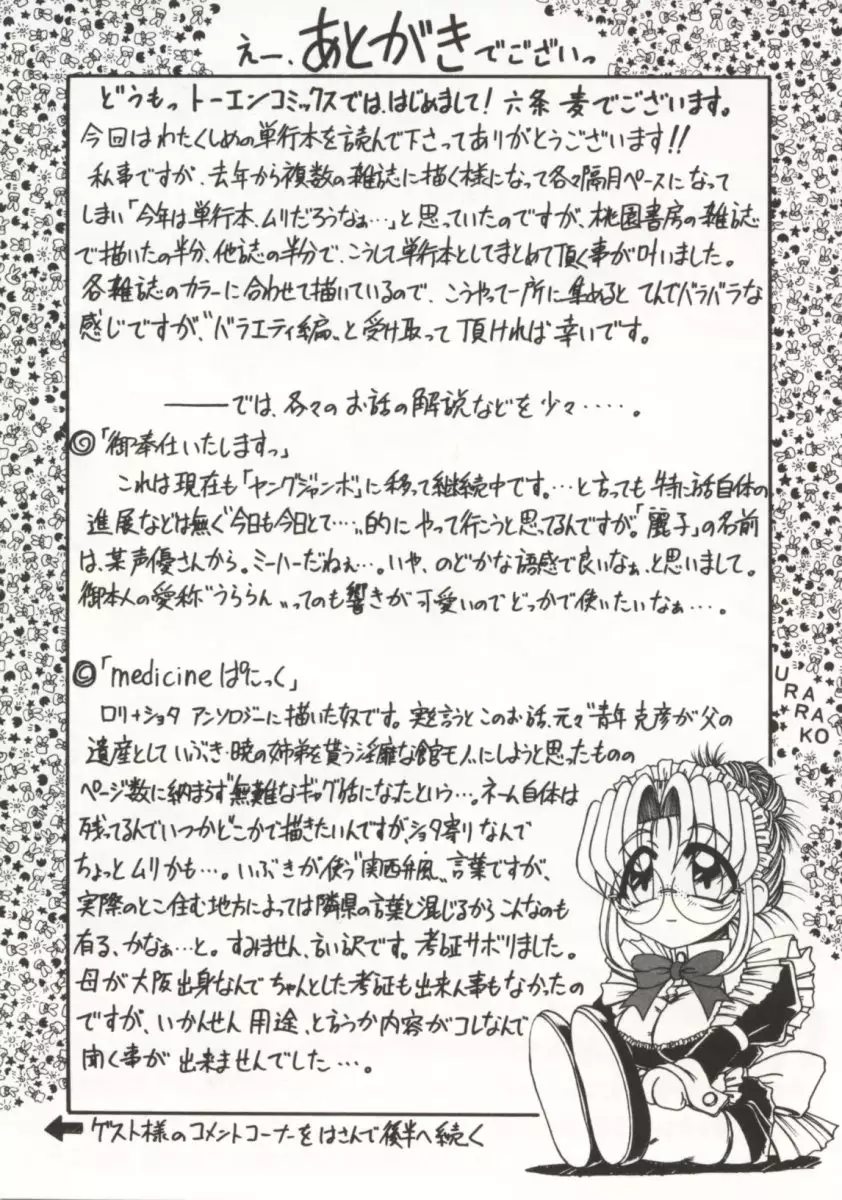 えー、あとがきでございっ
どうもっ トーエンコミックスでは、はじめまして! 六条 麦でございます。
今回はわたくしめの単行本を読んで下さってありがとうございます!!
私事ですが、去年から複数の雑誌に描く様になって各々隔月ペースになって
しまい「今年は単行本、ムリだろうなぁ…」と思っていたのですが、桃園書房の雑誌
で描いたの半分、他誌の半分で、こうして単行本としてまとめて頂く事が叶いました。
各雑誌のカラーに合わせて描いているので、こうやって一所に集めると てんでバラバラな
感じですが、"バラエティ編"と受け取って頂ければ幸いです。
――では、各々のお話の解説などを少々・・・・。
◎「御奉仕いたしますっ」
これは現在も「ヤングジャンボ」に移って継続中です。…と言っても 特に話自体の
進展などは無く"今日も今日とて…"的にやって行こうと思ってるんですが。「麗子」の名前
は、某声優さんから。ミーハーだねぇ…。いや、のどかな語感で良いなぁ、と思いまして。
御本人の愛称"うららん"ってのも響きが可愛いのでどっかで使いたいなぁ…。
◎「medicineぱにっく」
ロリ+ショタ アンソロジーに描いた奴です。実を言うとこのお話、元々"青年 克彦が父の
遺産として いぶき・暁の姉弟を貰う淫靡な館モノ"にしようと思ったものの
ページ数に納まらず"無難なギャグ話になったという…。ネーム自体は
残ってるんでいつかどこかで描きたいんですが、ショタ寄りなんで
ちょっとムリかも…。いぶきが使う"関西弁風"言葉ですが、
実際のとこ住む地方によっては隣県の言葉と混じるからこんなのも
有る、かなぁ…と。すみません、言い訳です。考証サボりました。
母が大阪出身なんで ちゃんとした考証も出来ん事もなかったの
ですが、いかんせん 用途、と言うか内容がコレなんで
聞く事が 出来ませんでした…。
URARAKO
← ゲスト様のコメントコーナーをはさんで後半へ続く